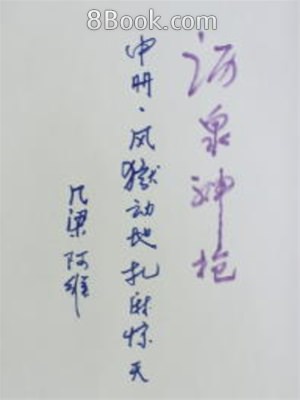 8Book.com
沥泉神枪
中册·风狱动地扎麻惊天
凡梁阿雄